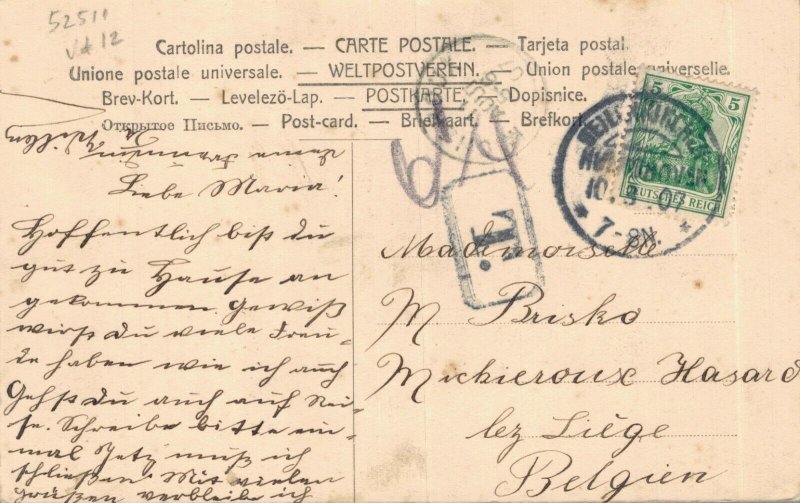 52511
Vd 12
Cartolina postale. — CARTE POSTALE. — Tarjeta postal.
Unione postale universale. — WELTPOSTVEREIN. — Union postale universelle.
Brev-Kort. — Levelezö-Lap. — POSTKARTE. — Dopisnice.
Открытое Письмо. — Post-card. — Briefkaart. — Brefkort
Liebe Maria!
Hoffentlich bist du
gut zu Hause an
gekommen. Gewiß
wirst du viele Freu-
de haben wie ich auch
Gehst du auch auf Rei-
se. Schreibe bitte ein-
mal Jetz muß ich
schließen Mit vielen
Grüßen verbleibe ich
T.
5 5
DEUTSCHES REICH
7-8N.
Mademoiselle
M Brisko
Mickieroux Hasard
lez Liège
Belgien